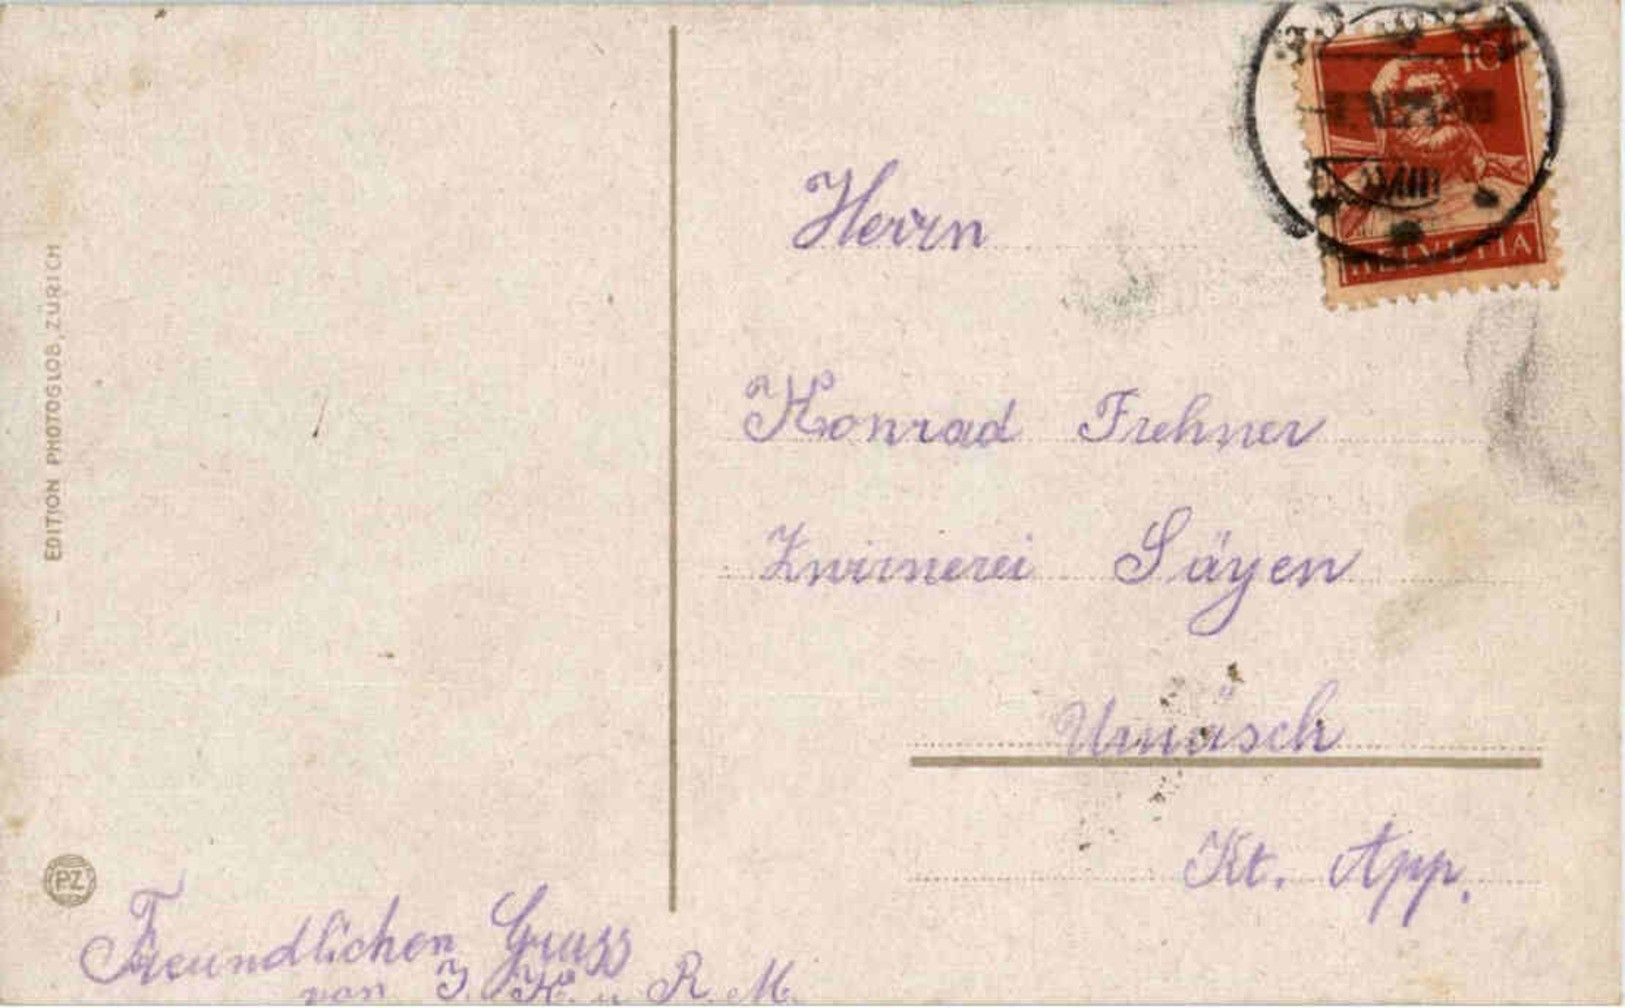 EDITION PHOTOGLOB, ZÜRICH
PZ
10
HELVETIA
XVIII
Herrn
Konrad Frehner
Zwirnerei Säyen
Urnäsch
Kt. App.
Freundlichen Gruss
von J. K. u R. M.